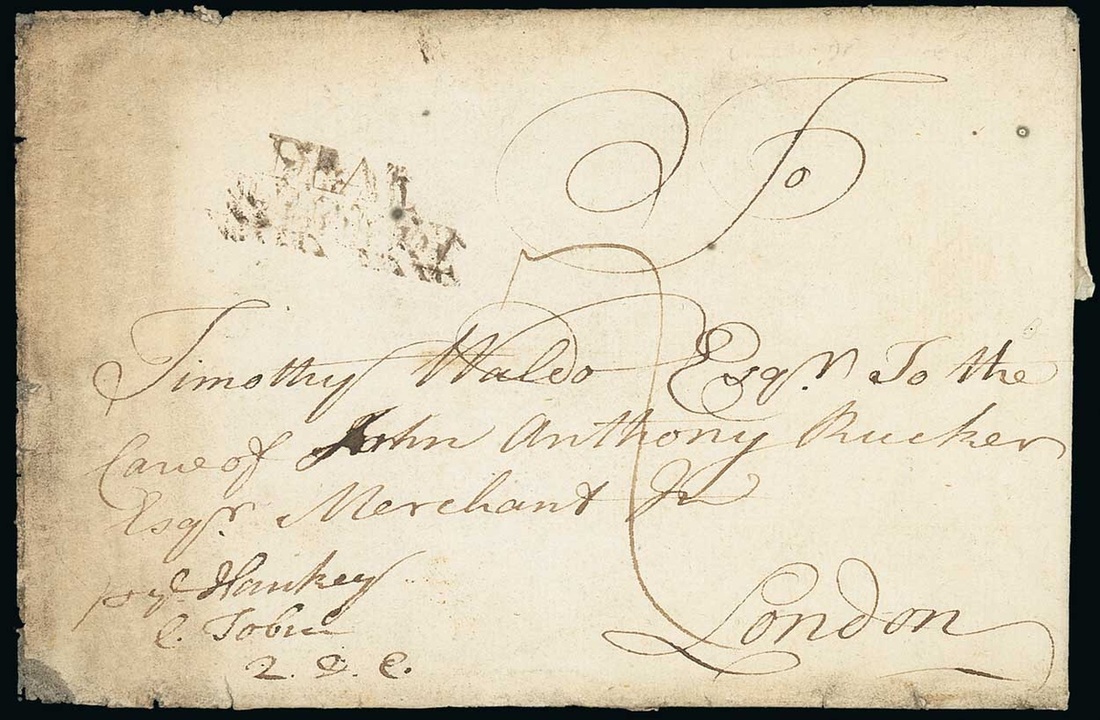 To
DEAL
Timothy Waldo Esqr. To the
Care of John Anthony Rucker
Esqr. Merchant In
London
pr ye Hankey
C. Tobin
2. D. C.